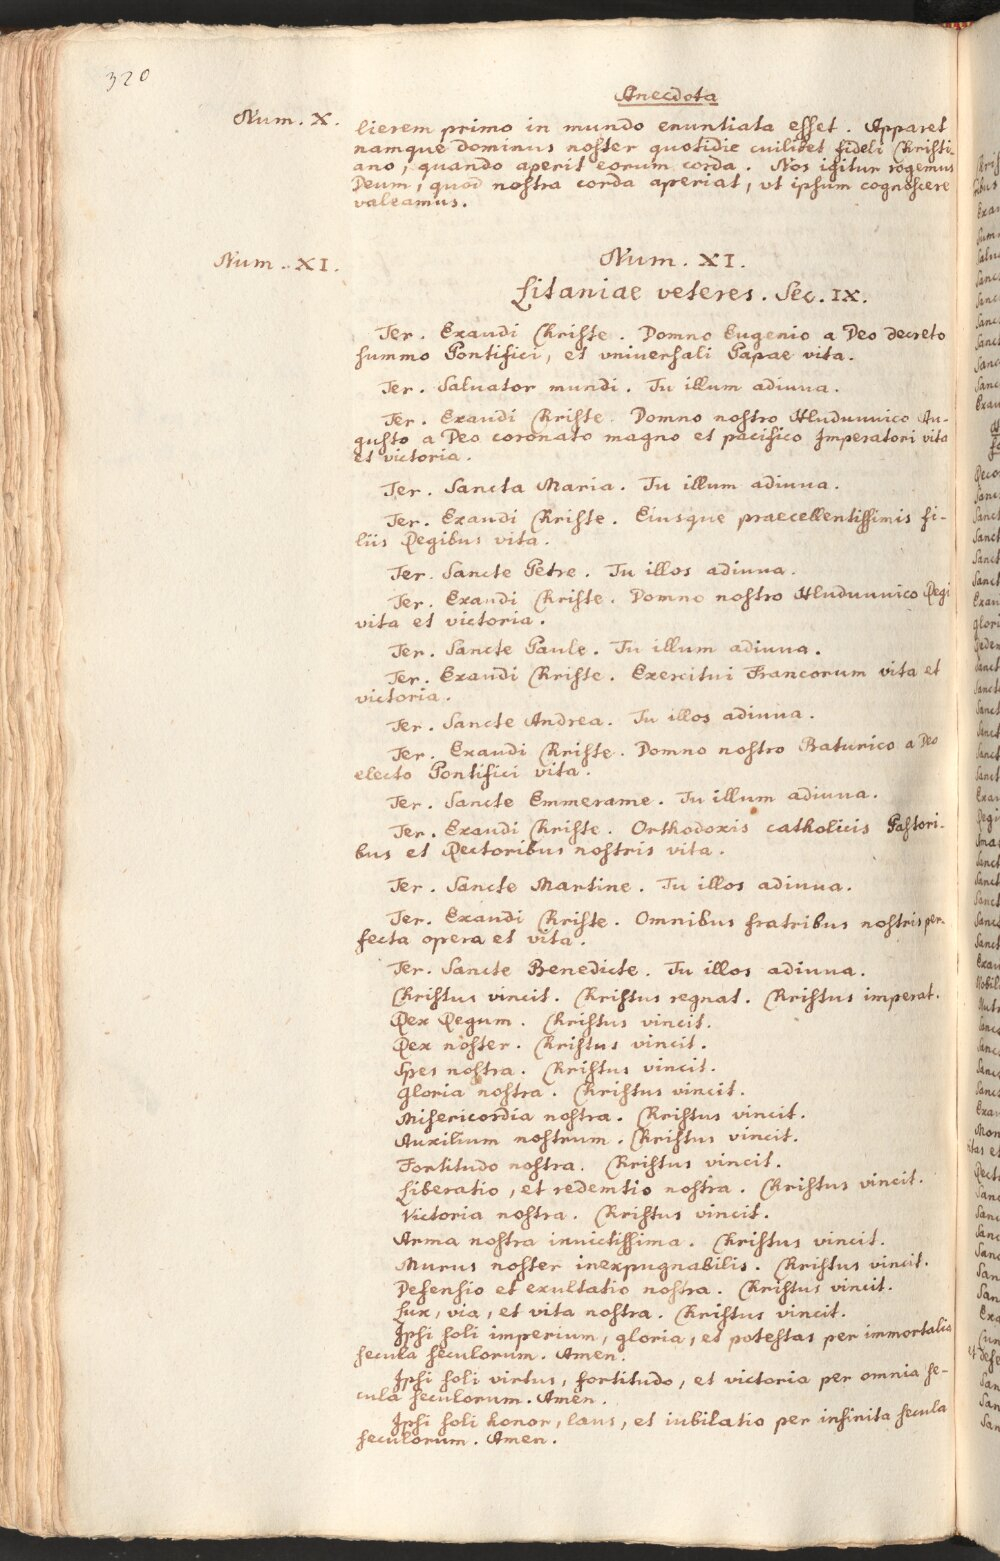 320
Anecdota
Num. X.
lierem primo in mundo enuntiata esset. Apparet
namque dominus noster quotidie cuilibet fideli Christi-
ano, quando aperit eorum corda. Nos igitur rogemus
Deum, quod nostra corda aperiat, vt ipsum cognoscere
valeamus.
Num. XI.
Num. XI.
Litaniae veteres. Sec. IX.
Ter. Exaudi Christe. Domno Eugenio a Deo decreto
summo Pontifici, et vniuersali Papae vita.
Ter. Saluator mundi. Tu illum adiuua.
Ter. Exaudi Christe. Domno nostro Hluduuuico Au-
gusto a Deo coronato magno et pacifico Imperatori vita
et victoria.
Ter. Sancta Maria. Tu illum adiuua.
Ter. Exaudi Christe. Eiusque praecellentissimis fi-
liis Regibus vita.
Ter. Sancte Petre. Tu illos adiuua.
Ter. Exaudi Christe. Domno nostro Hluduuuico Regi
vita et victoria.
Ter. Sancte Paule. Tu illum adiuua.
Ter. Exaudi Christe. Exercitui Francorum vita et
victoria.
Ter. Sancte Andrea. Tu illos adiuua.
Ter. Exaudi Christe. Domno nostro Baturico a Deo
electo Pontifici vita.
Ter. Sancte Emmerame. Tu illum adiuua.
Ter. Exaudi Christe. Orthodoxis catholicis Pastori-
bus et Rectoribus nostris vita.
Ter. Sancte Martine. Tu illos adiuua.
Ter. Exaudi Christe. Omnibus fratribus nostris per-
fecta opera et vita.
Ter. Sancte Benedicte. Tu illos adiuua.
Christus vincit. Christus regnat. Christus imperat.
Rex Regum. Christus vincit.
Rex noster. Christus vincit.
Spes nostra. Christus vincit.
Gloria nostra. Christus vincit.
Misericordia nostra. Christus vincit.
Auxilium nostrum. Christus vincit.
Fortitudo nostra. Christus vincit.
Liberatio, et redemtio nostra. Christus vincit.
Victoria nostra. Christus vincit.
Arma nostra inuictissima. Christus vincit.
Murus noster inexpugnabilis. Christus vincit.
Defensio et exultatio nostra. Christus vincit.
Lux, via, et vita nostra. Christus vincit.
Ipsi soli imperium, gloria, et potestas per immortalia
secula seculorum. Amen.
Ipsi soli virtus, fortitudo, et victoria per omnia se-
cula seculorum. Amen.
Ipsi soli honor, laus, et iubilatio per infinita secula
seculorum. Amen.